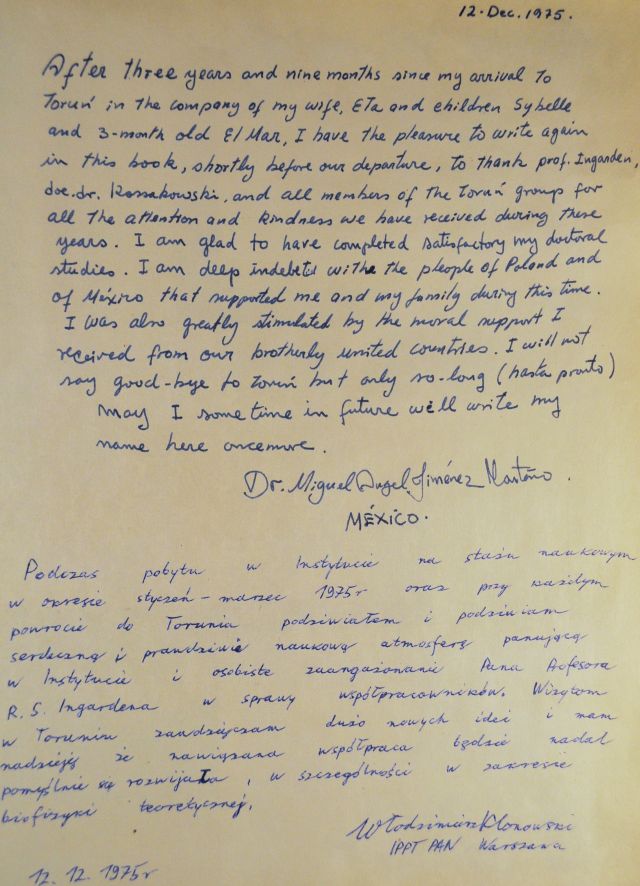 12. Dec. 1975.
After three years and nine months since my arrival to
Toruń in the company of my wife, Eta and children Sybelle
and 3-month old El Mar, I have the pleasure to write again
in this book, shortly before our departure, to thank prof. Ingarden,
doc. dr. Kossakowski, and all members of the Toruń group for
all the attention and kindness we have received during these
years. I am glad to have completed satisfactory my doctoral
studies. I am deep indebted withe the pleople of Poland and
of México that supported me and my family during this time.
I was also greatly stimulated by the moral support I
received from our brotherly united countries. I will not
say good-bye to Toruń but only so-long (hasta pronto)
May I some time in future well write my
name here oncemore.
Dr. Miguel Angel Jiménez Montaño.
MÉXICO.
Podczas pobytu w Instytucie na stażu naukowym
w okresie styczeń - marzec 1975r oraz przy każdym
powrocie do Torunia podziwiałem i podziwiam
serdeczną i prawdziwie naukową atmosferę panującą
w Instytucie i osobiste zaangażowanie Pana Profesora
R. S. Ingardena w sprawy współpracowników. Wizytom
w Toruniu zawdzięczam dużo nowych idei i mam
nadzieję że nawiązana współpraca będzie nadal
pomyślnie się rozwijała, w szczególności w zakresie
biofizyki teoretycznej.
Włodzimierz Klonowski
IPPT PAN Warszawa
12. 12. 1975r